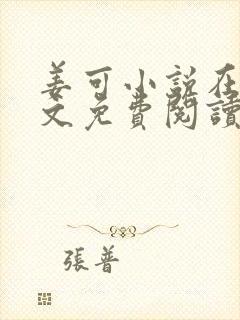 姜可小説在
文免費閱讀
張普